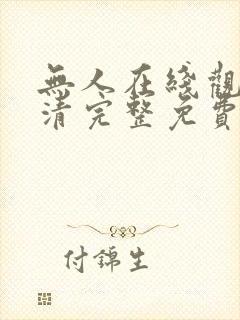 無人在綫觀
清完整免費
付錦生